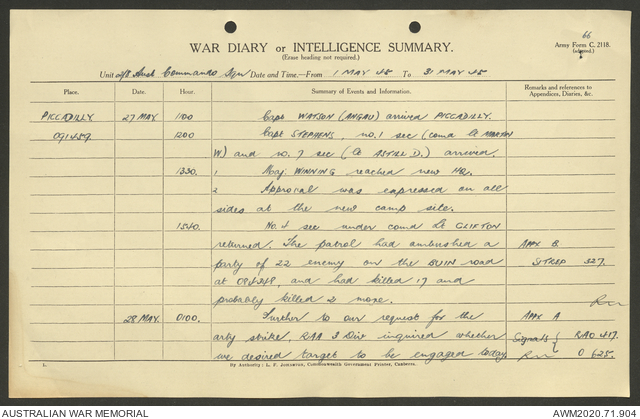 66
WAR DIARY or INTELLIGENCE SUMMARY.
(Erase heading not required.)
Army Form C. 2118.
(adapted.)
Unit 2/8 Aust Commando Sqn Date and Time.—From 1 MAY 45 To 31 MAY 45
Place. Date. Hour. Summary of Events and Information. Remarks and references to Appendices, Diaries, &c.
PICCADILLY 27 MAY 1100 Capt WATSON (ANGAU) arrived PICCADILLY.
091459. 1200 Capt STEPHENS, no. 1 sec (comd Lt MARTIN
W) and no. 7 sec (Lt ASTILL D.) arrived.
1330. 1 Maj. WINNING reached new HQ.
2 Approval was expressed on all
sides at the new camp site.
1540. No. 4 sec under comd Lt CLIFTON
returned. The patrol had ambushed a APPX B
party of 22 enemy on the BUIN road SITREP 327.
at 094248, and had killed 17 and
probably killed 2 more.
28 MAY. 0100. Further to our request for the APPX A
arty strike, RAA 3 Div inquired whether Signals { RAO 417.
we desired target to be engaged today. O 625.
L. By Authority: L. F. JOHNSTON, Commonwealth Government Printer, Canberra.
AUSTRALIAN WAR MEMORIAL AWM2020.71.904